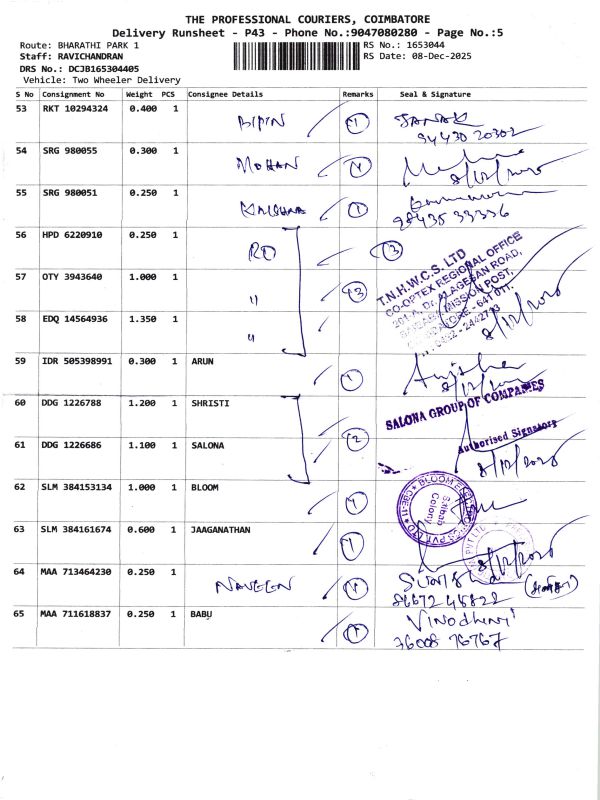 THE PROFESSIONAL COURIERS, COIMBATORE
Delivery Runsheet - P43 - Phone No.:9047080280 - Page No.:5
Route: BHARATHI PARK 1
Staff: RAVICHANDRAN
DRS No.: DCJB165304405
Vehicle: Two Wheeler Delivery
RS No.: 1653044
RS Date: 08-Dec-2025
S No Consignment No Weight PCS Consignee Details Remarks Seal & Signature
53 RKT 10294324 0.400 1 BIPIN 1 JANAK
94430 20302
54 SRG 980055 0.300 1 MOHAN 1
8/12/2025
55 SRG 980051 0.250 1 1
98435 33336
56 HPD 6220910 0.250 1 RO 3
57 OTY 3943640 1.000 1 " 3
58 EDQ 14564936 1.350 1 "
T.N.H.W.C.S. LTD
CO-OPTEX REGIONAL OFFICE
8/12/2025
59 IDR 505398991 0.300 1 ARUN 1
8/12/2025
60 DDG 1226788 1.200 1 SHRISTI
SALONA GROUP OF COMPANIES
61 DDG 1226686 1.100 1 SALONA 2
Authorised Signatory
8/12/2025
62 SLM 384153134 1.000 1 BLOOM 1
Colony
63 SLM 384161674 0.600 1 JAAGANATHAN 1
8/12/2025
64 MAA 713464230 0.250 1 NAVEEN 1
86672 45822
65 MAA 711618837 0.250 1 BABU 1 Vinodhini
76008 76767